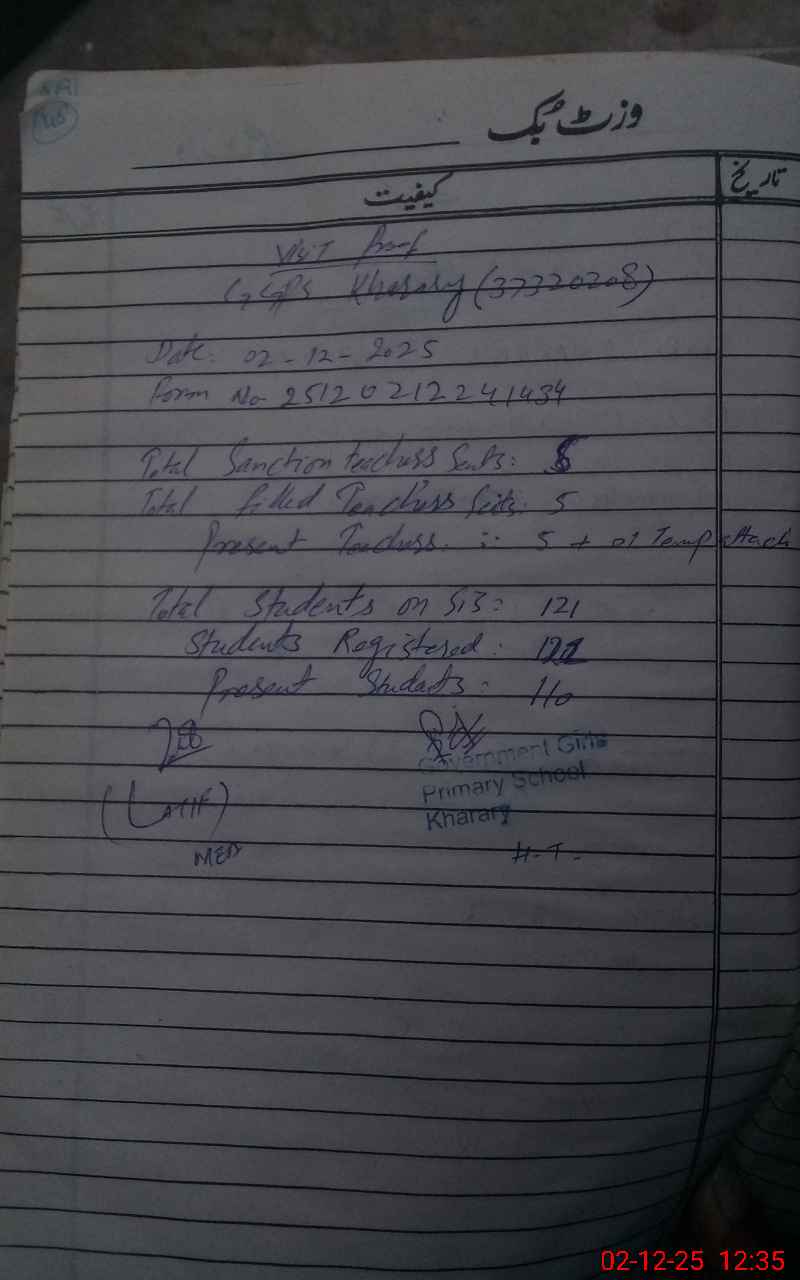 وزٹ بُک
کیفیت
تاریخ
Visit Proof
GGPS Kharary (37320208)
Date: 02-12-2025
Form No 251202122241434
Total Sanction teachers Seats:
Total filled Teachers Seits: 5
Present Teachers :- 5 + 01 Temp Attach
Total Students on SIS: 121
Students Registered:
Present Students: 110
Government Girls
Primary School
Kharary
(LATIF)
MEA
H.T.
02-12-25 12:35